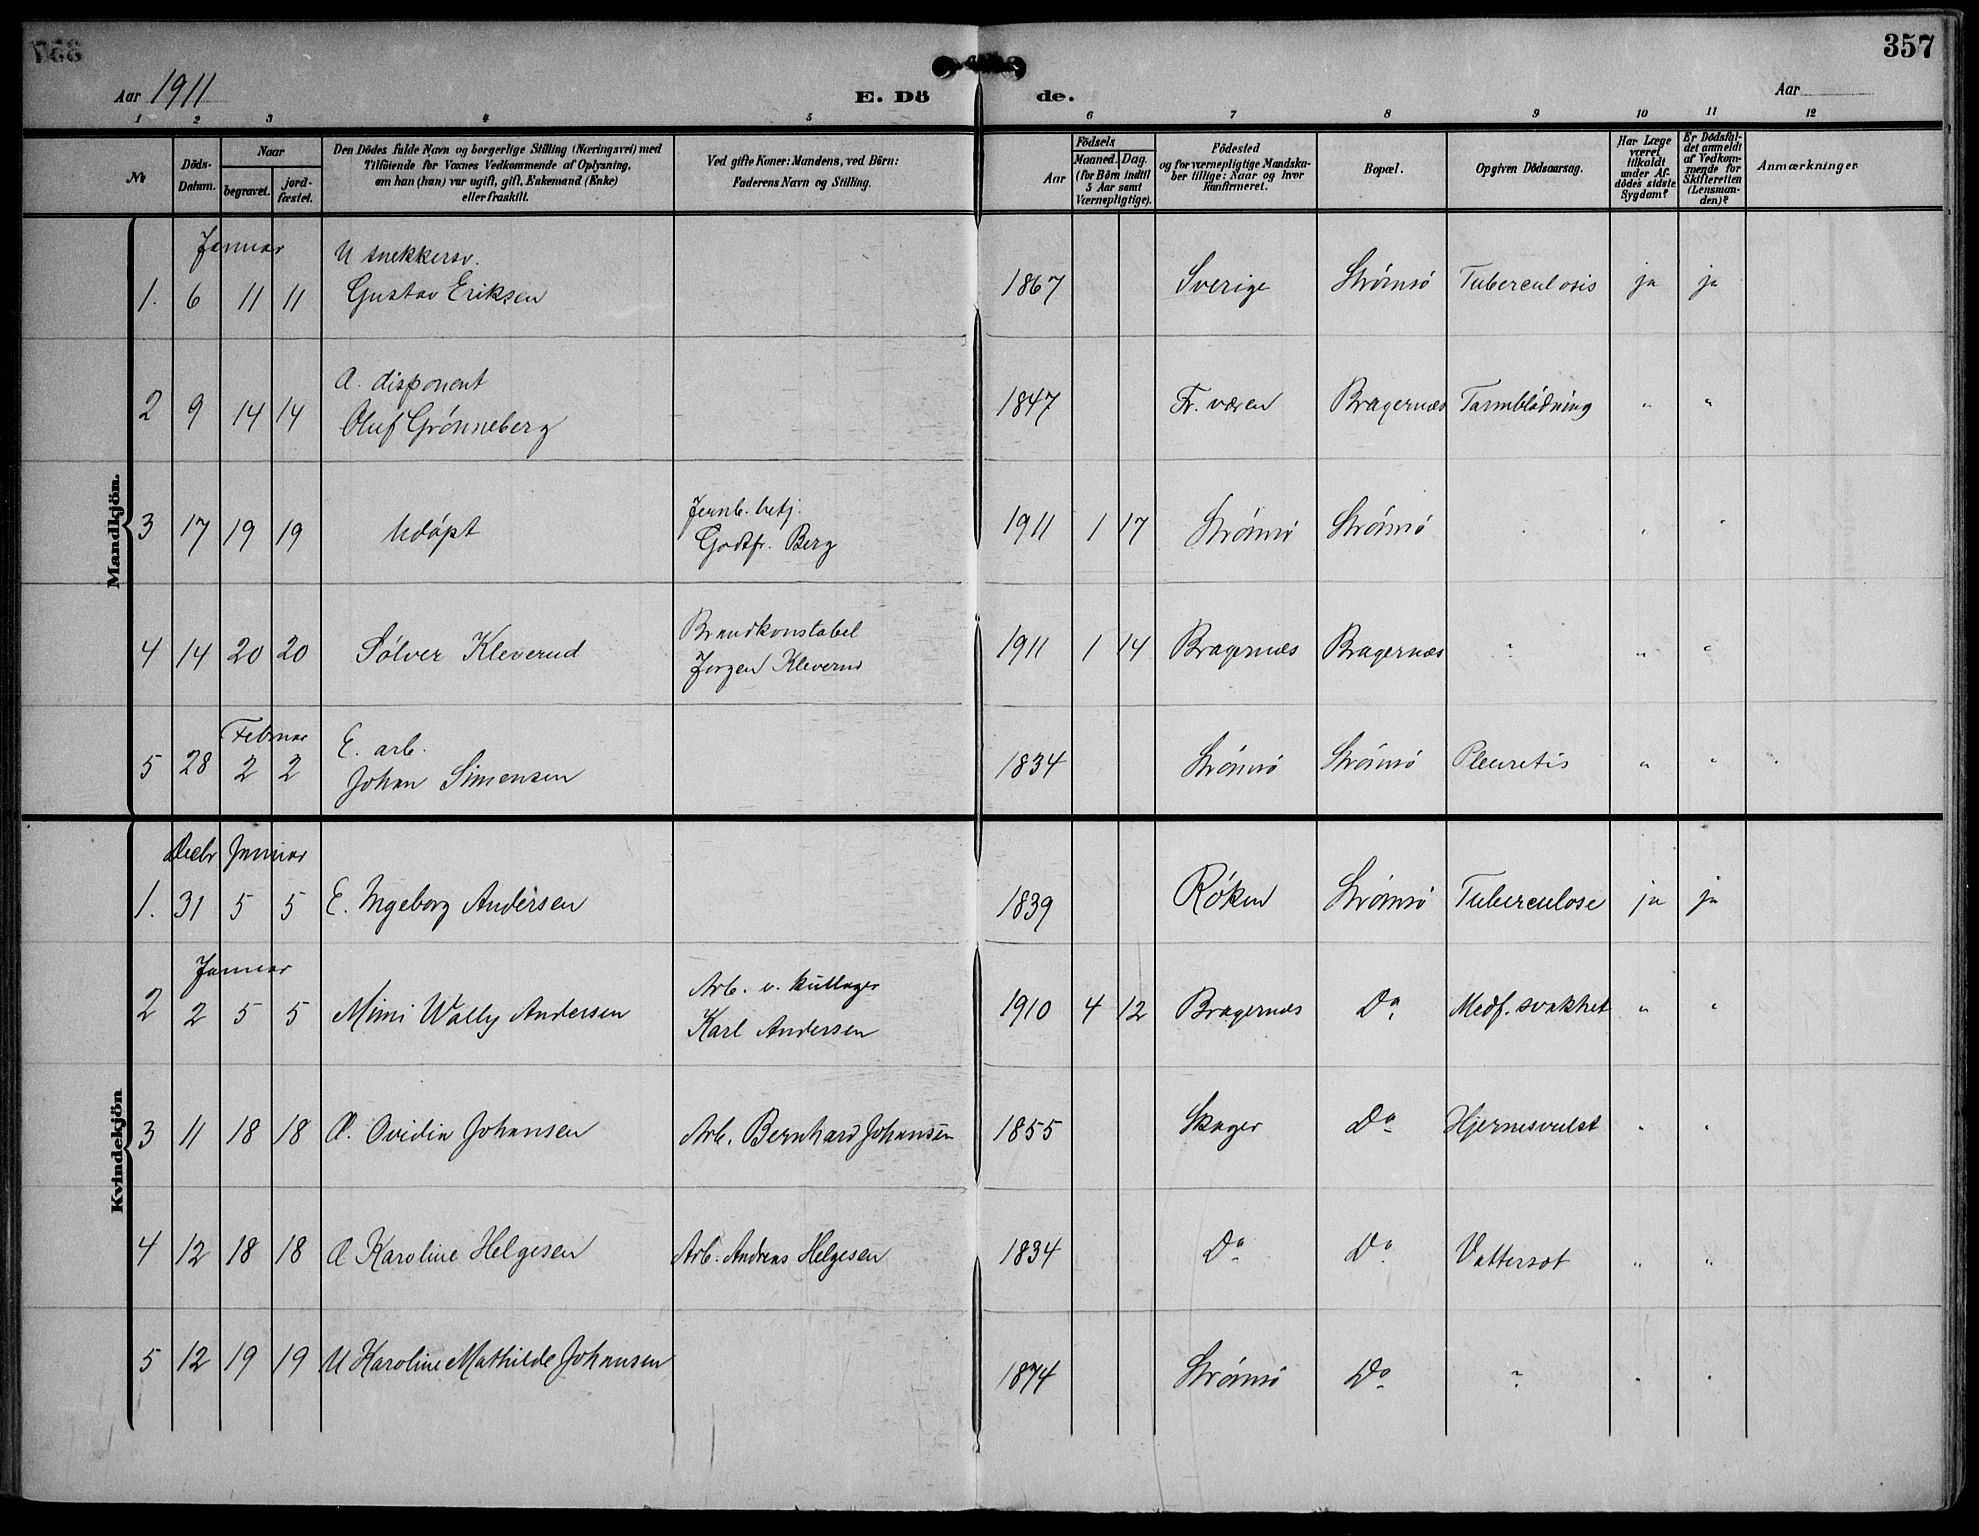 357
Aar 1911
E. Dö de.
Aar
1 2 3 4 5 6 7 8 9 10 11 12
No
Döds-Datum.
Naar
begravet.
jord-fæstet.
Den Dödes fulde Navn og borgerlige Stilling (Næringsvei) med
Tilföiende for Voxnes Vedkommende af Oplysning,
om han (hun) var ugift, gift, Enkemand (Enke)
eller fraskilt.
Ved gifte Koner: Mandens, ved Börn:
Faderens Navn og Stilling.
Födsels
Aar
Maaned. Dag.
(for Börn indtil
5 Aar samt
Værnepligtige).
Födested
og for værnepligtige Mandska-
ber tillige: Naar og hvor
konfirmeret.
Bopæl.
Opgiven Dödsaarsag.
Har Læge
været
tilkaldt
under Af-
dödes sidste
Sygdom?
Er Dödsfal-
det anmeldt
af Vedkom-
mende for
Skifteretten
(Lensman-
den)?
Anmærkninger
Mandkjön.
Januar
U snekkersv.
1. 6 11 11 Gustav Eriksen 1867 Sverige Strömsö Tuberculosis ja ja
disponent
2 9 14 14 Oluf Grönneberg 1847 Fr. væren Bragernæs Tarmblödning " "
Jernb. betj.
3 17 19 19 Udöpt Godtfr. Berg 1911 1 17 Strömsö Strömsö " "
Brandkonstabel
4 14 20 20 Sölver Kleverud Jörgen Kleverud 1911 1 14 Bragernæs Bragernæs " " "
Februar
E. arb.
5 28 2 2 Johan Simensen 1834 Strömsö Strömsö Pleuretis " "
Kvindekjön
Decbr Januar
1. 31 5 5 E. Ingeborg Andersen 1839 Röken Strömsö Tuberculose ja ja
Januar
Arb. v. kullager
2 2 5 5 Mimi Wally Andersen Karl Andersen 1910 4 12 Bragernæs Do Medf. svakhet " "
3 11 18 18 Ovidia Johansen Arb. Bernhard Johansen 1855 Skoger Do Hjernesvulst " "
4 12 18 18 Karoline Helgesen Arb. Andreas Helgesen 1834 Do Do Vattersot " "
5 12 19 19 U Karoline Mathilde Johansen 1874 Strömsö Do " " "